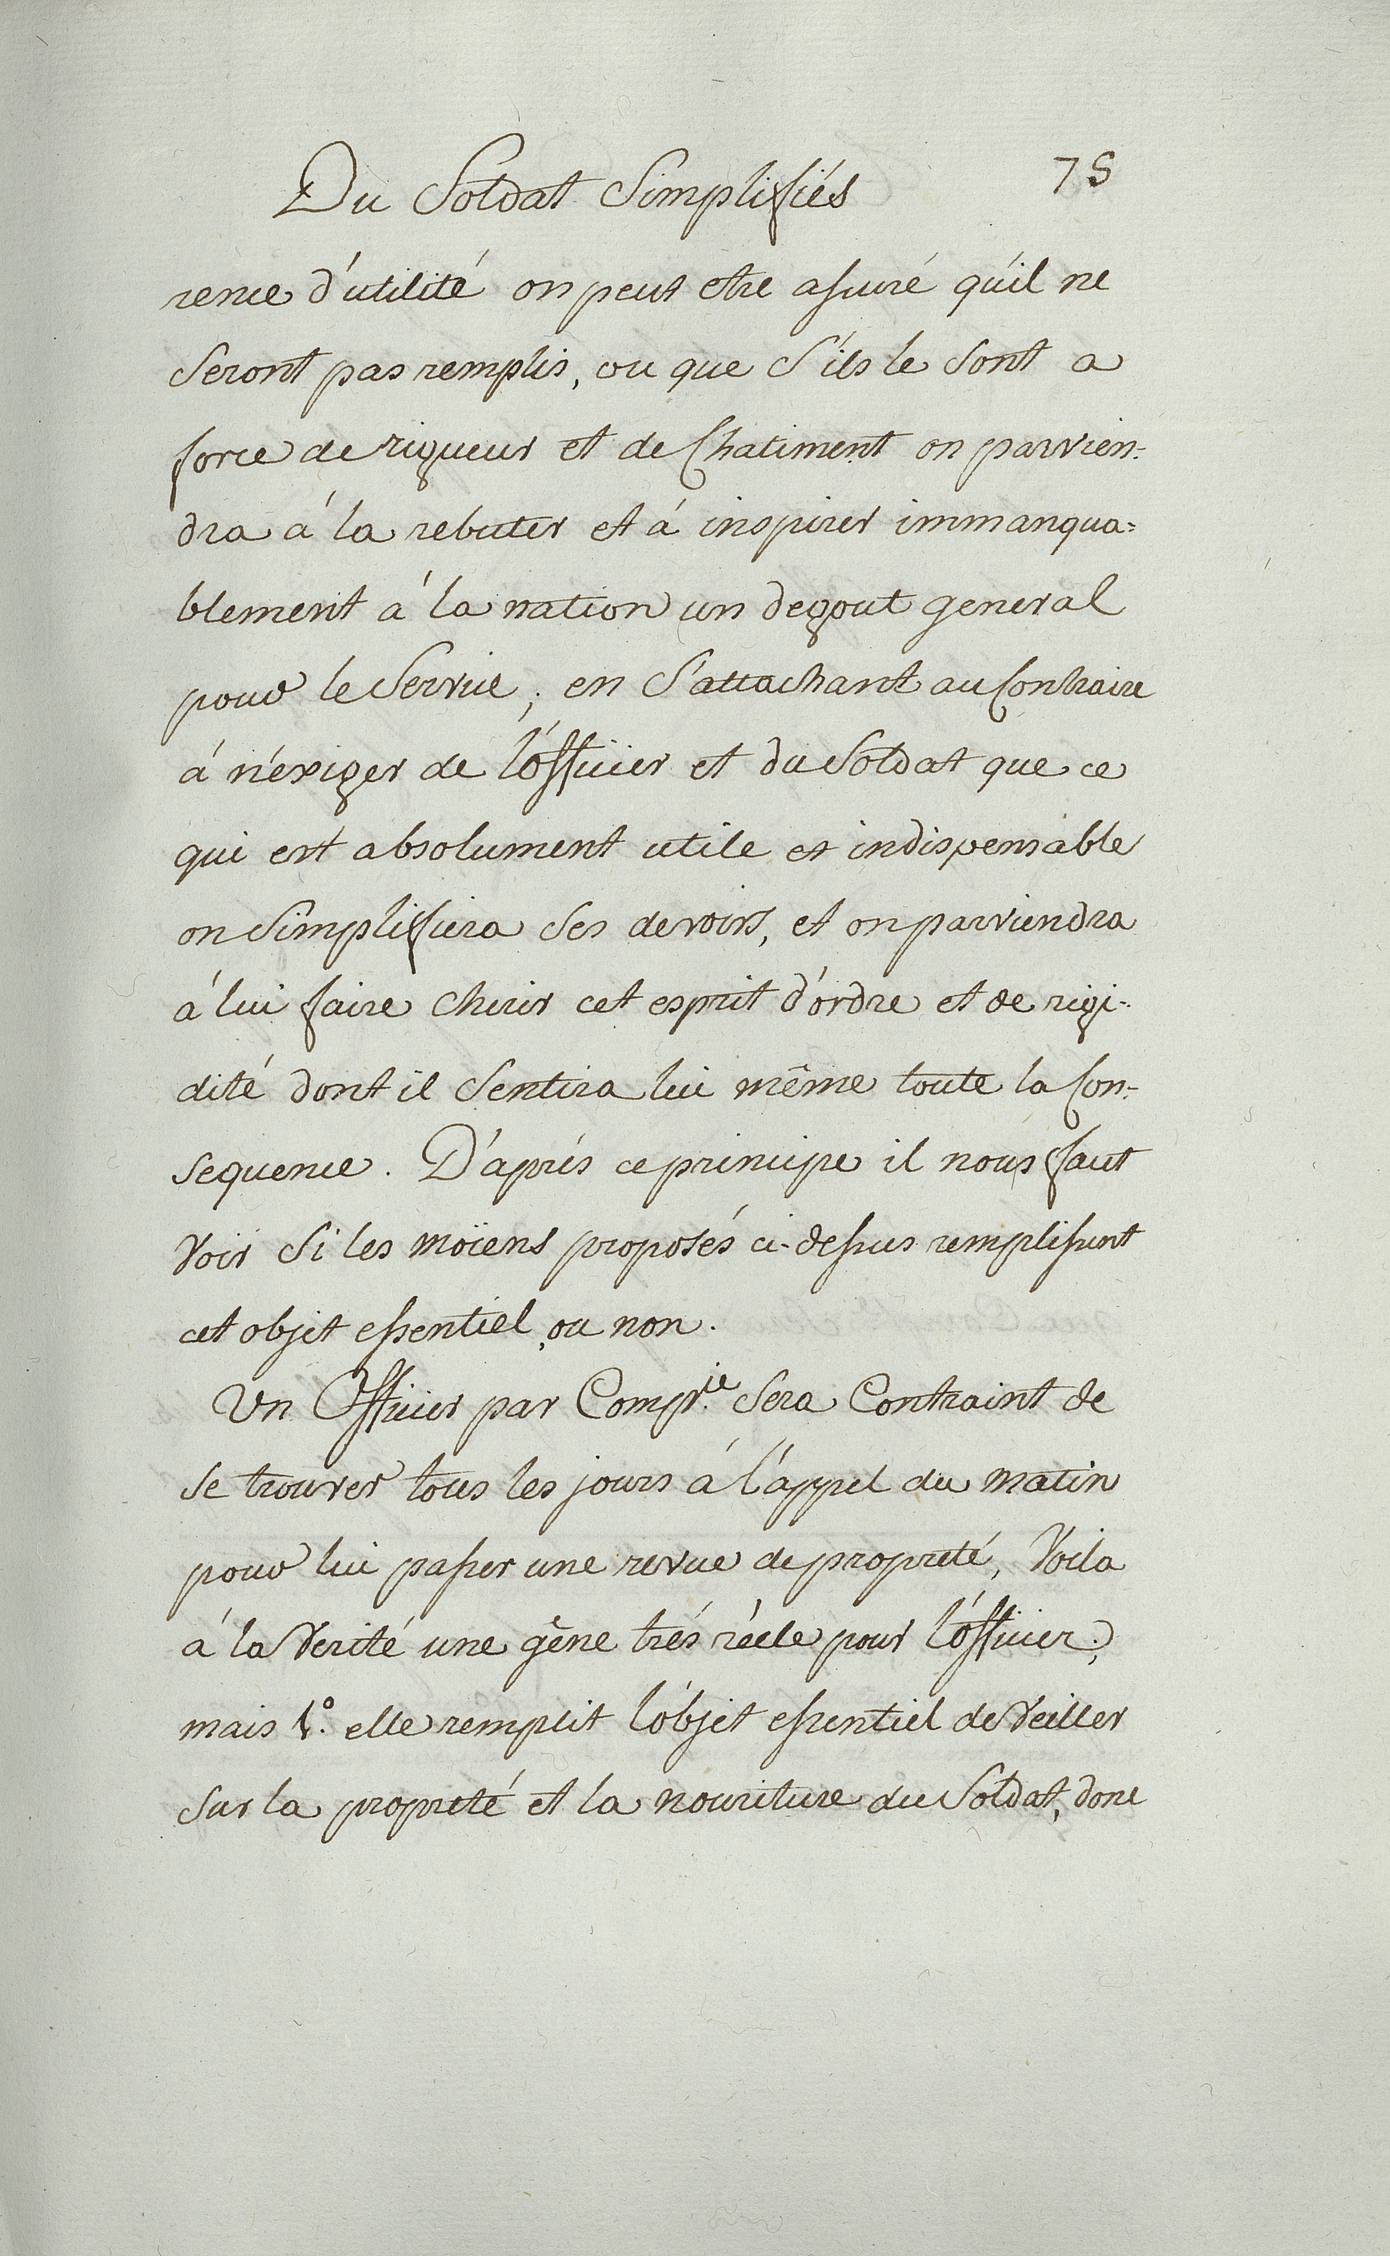 Du Soldat Simplifiés 75
rence d'utilité on peut etre assuré qu'il ne
seront pas remplis, ou que s'ils le sont a
force de rigueur et de Chatiment on parvien=
dra à la rebuter et à inspirer immanqua=
blement à la nation un degout general
pour le Service ; en s'attachant au Contraire
à n'exiger de l'officier et du Soldat que ce
qui est absolument utile et indispensable
on Simplifiera Ses devoirs, et on parviendra
à lui faire cherir cet esprit d'ordre et de rigi-
dité dont il Sentira lui même toute la Con=
sequence. D'après ce principe il nous faut
Voir Si les moïens proposés ci-dessus remplissent
cet objet essentiel, ou non.
Un Officier par Comp.ie Sera Contraint de
se trouver tous les jours à l'appel du matin
pour lui passer une revue de propreté, Voila
à la Verité une gêne trés réele pour l'officier;
mais 1°. elle remplit l'objet essentiel de Veiller
Sur la propreté et la nouriture du Soldat, donc